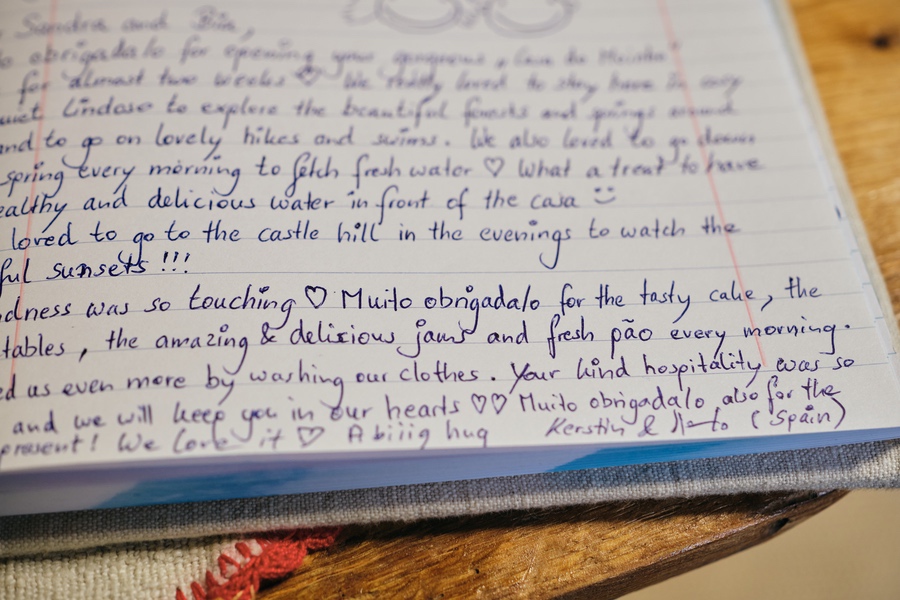 Sandra and Bia,
obrigadalo for opening your gorgeous "Casa do
for almost two weeks ♡ We really loved to stay here in
Lindoso to explore the beautiful forests and springs around
and to go on lovely hikes and swims. We also loved to go down
spring every morning to fetch fresh water ♡ What a treat to have
ealthy and delicious water in front of the casa
loved to go to the castle hill in the evenings to watch the
ful sunsets !!!
dness was so touching ♡ Muito obrigadalo for the tasty cake, the
tables, the amazing & delicious jams and fresh pão every morning.
ed us even more by washing our clothes. Your kind hospitality was so
and we will keep you in our hearts ♡♡ Muito obrigadalo also for the
present! We love it ♡ A biiiig hug Kerstin & (Spain)